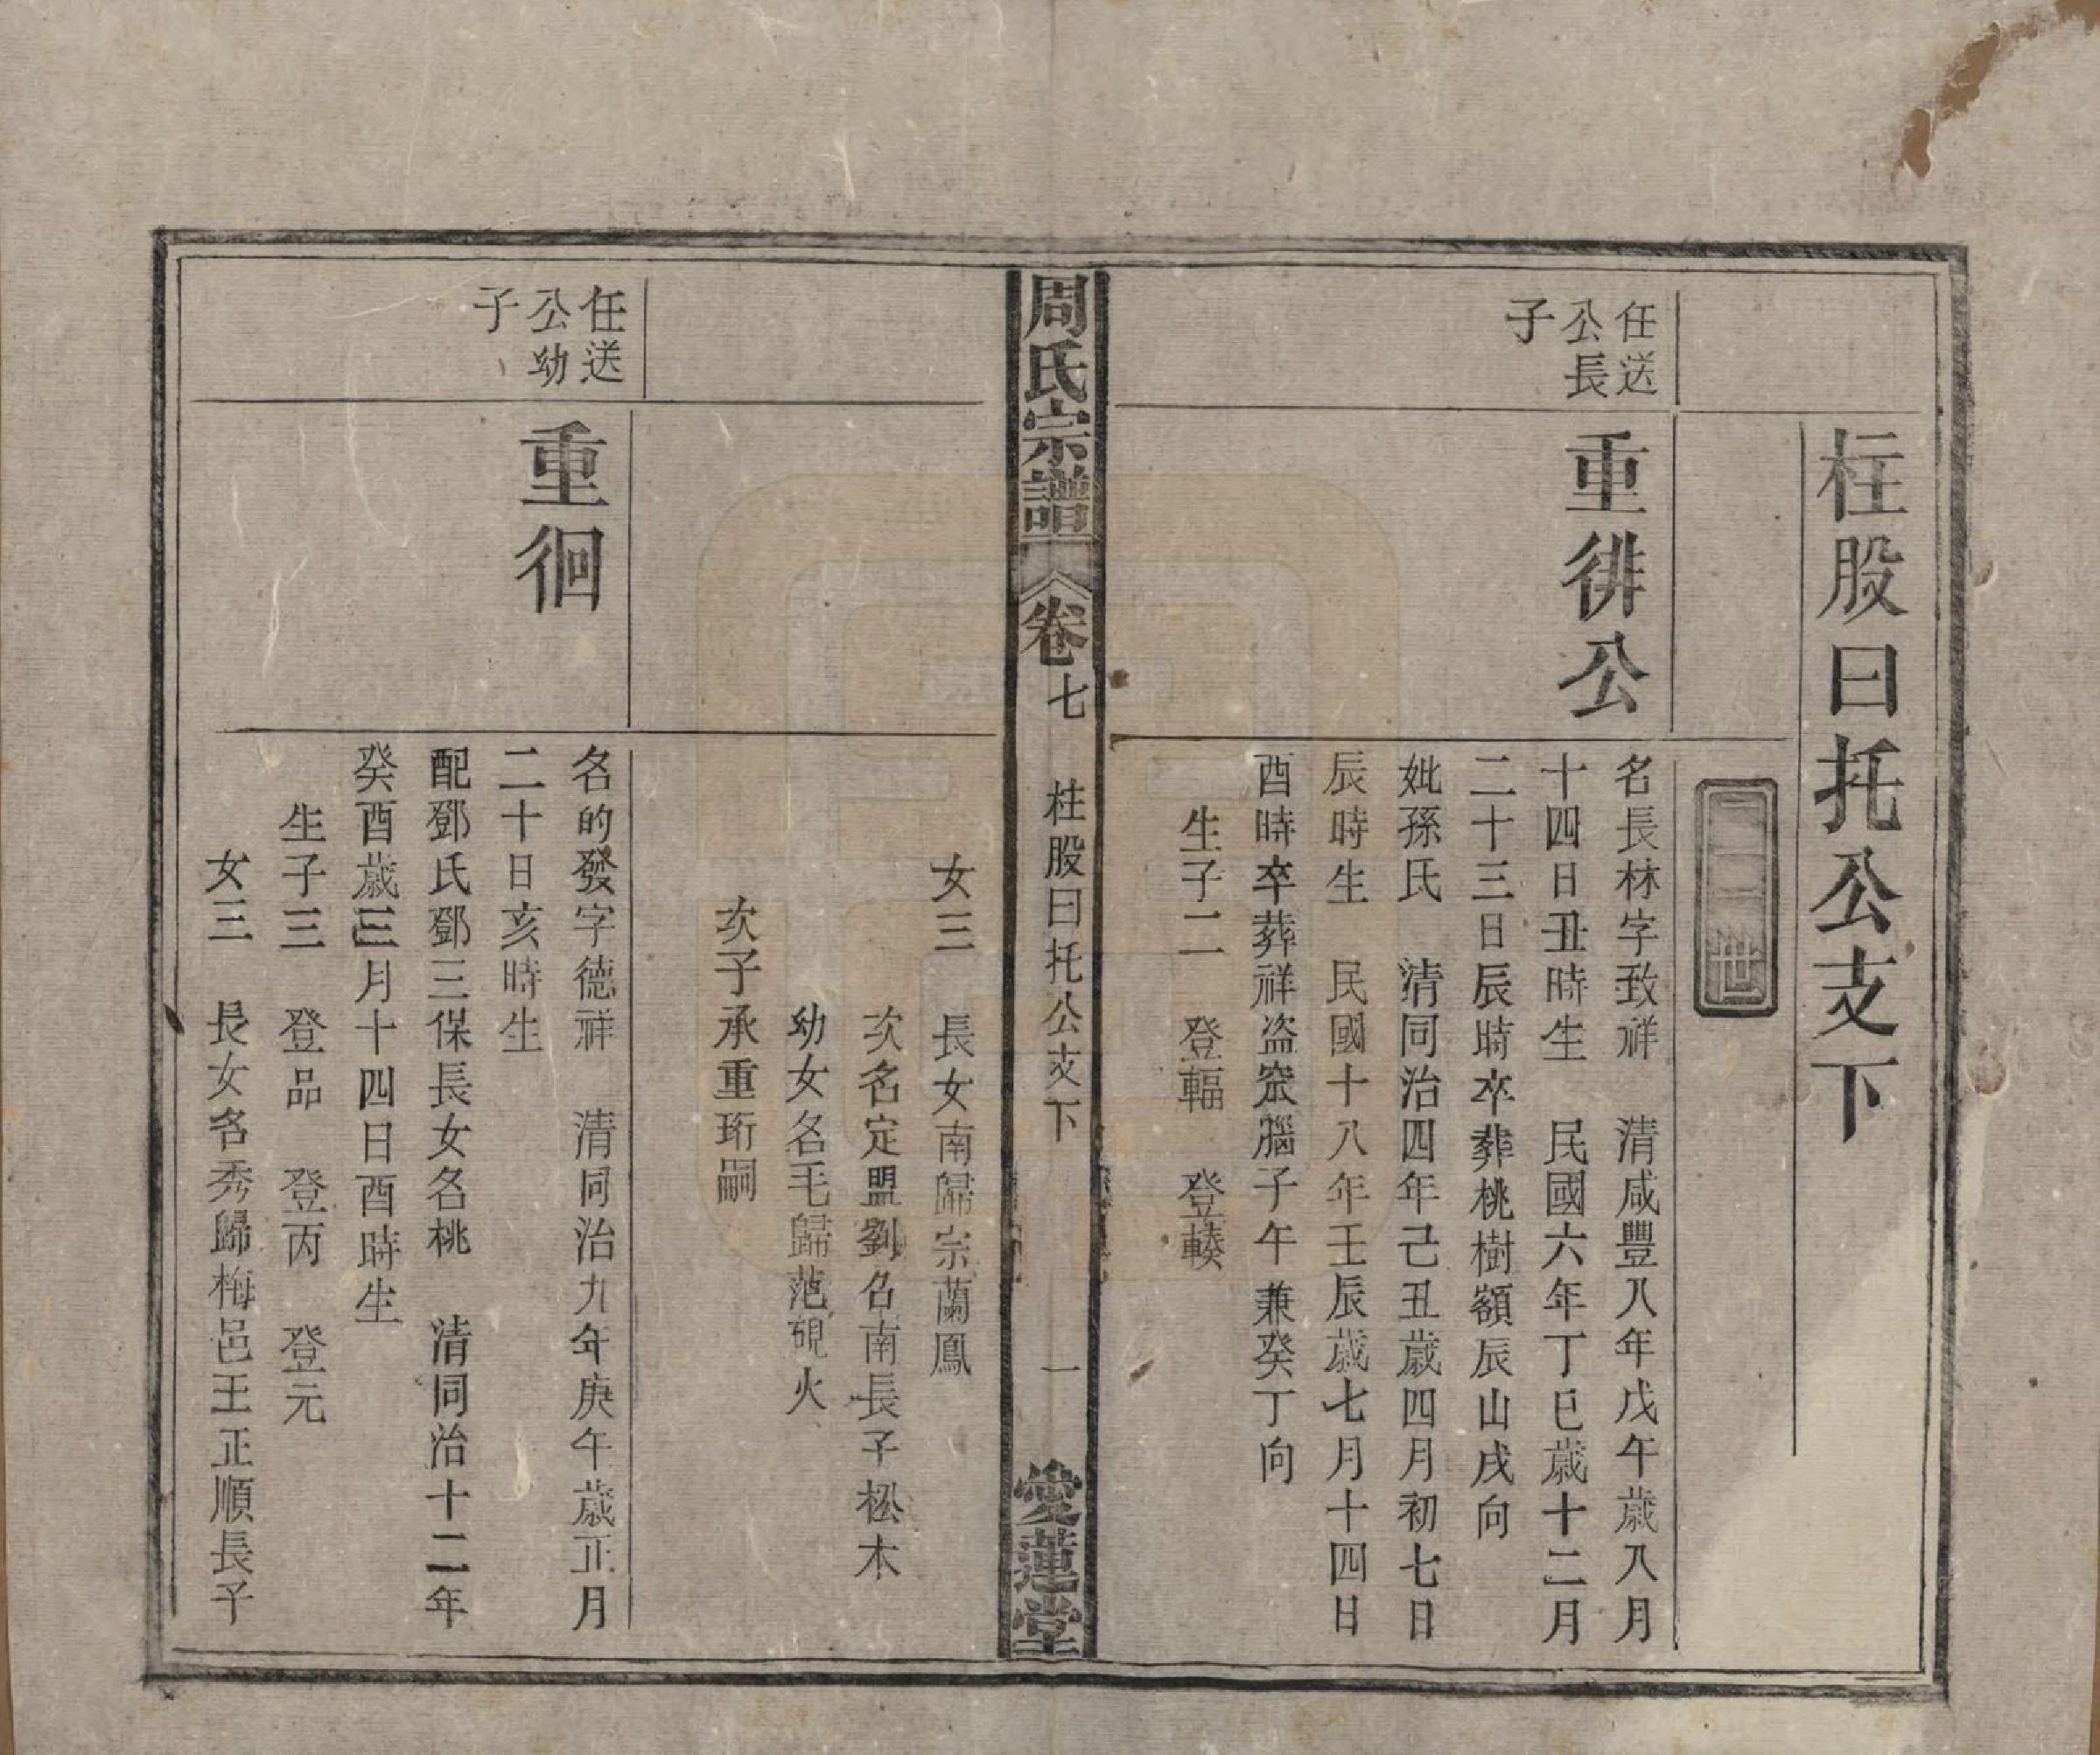 柱股曰托公支下
二二世
任送
公長
子
重徘公
名長林字致祥　清咸豐八年戊午歲八月
十四日丑時生　民國六年丁巳歲十二月
二十三日辰時卒葬桃樹額辰山戌向
妣孫氏　清同治四年己丑歲四月初七日
辰時生　民國十八年壬辰歲七月十四日
酉時卒葬祥盜窊腦子午兼癸丁向
生子二　登輻　登轃
周氏宗譜　卷七　柱股曰托公支下　一　愛蓮堂
女三　長女南歸宗蘭鳳
次名定盟劉名南長子松木
幼女名毛歸范硯火
次子承重珩嗣
任送
公幼
子
重徊
名的發字德祥　清同治九年庚午歲正月
二十日亥時生
配鄧氏鄧三保長女名桃　清同治十二年
癸酉歲三月十四日酉時生
生子三　登品　登丙　登元
女三　長女名秀歸梅邑王正順長子